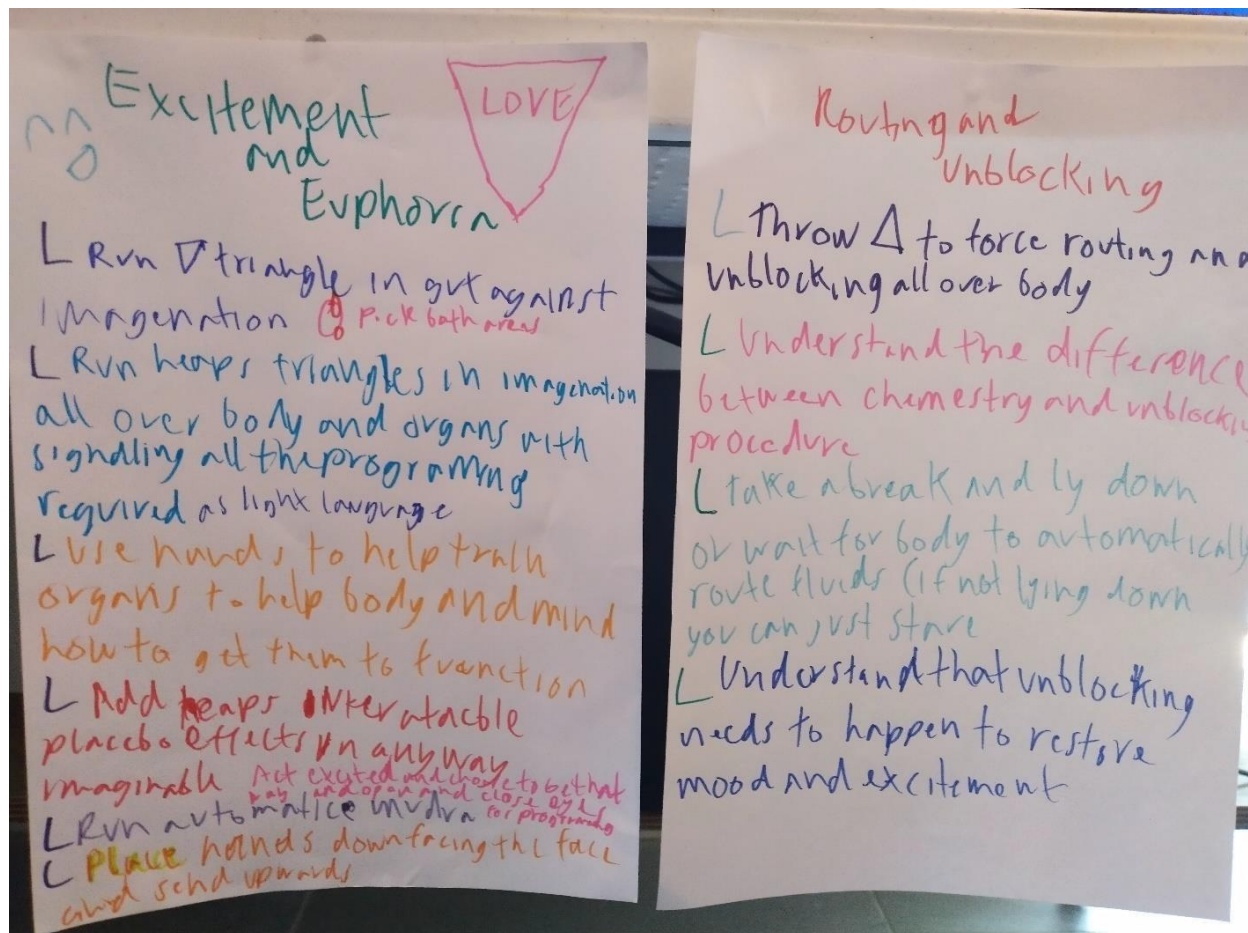 Excitement
and
Euphoria
LOVE
L Run ▽ triangle in gut against
imagenation Pick both areas
L Run heaps triangles in imagenation
all over body and organs with
signalling all the programing
required as light language
L Use hands to help train
organs to help body and mind
how to get them to function
L Add heaps
placebo effects in anyway
imaginable Act excited and choose to be that
way and open and close eye
L Run automatice mudra for programing
L Place hands down facing the face
and send upwards
Routing and
unblocking
L Throw △ to force routing and
unblocking all over body
L Understand the difference
between chemestry and
procedure
L take a break and ly down
or wait for body to automatically
route fluids (if not lying down
you can just stare
L Understand that unblocking
needs to happen to restore
mood and excitement